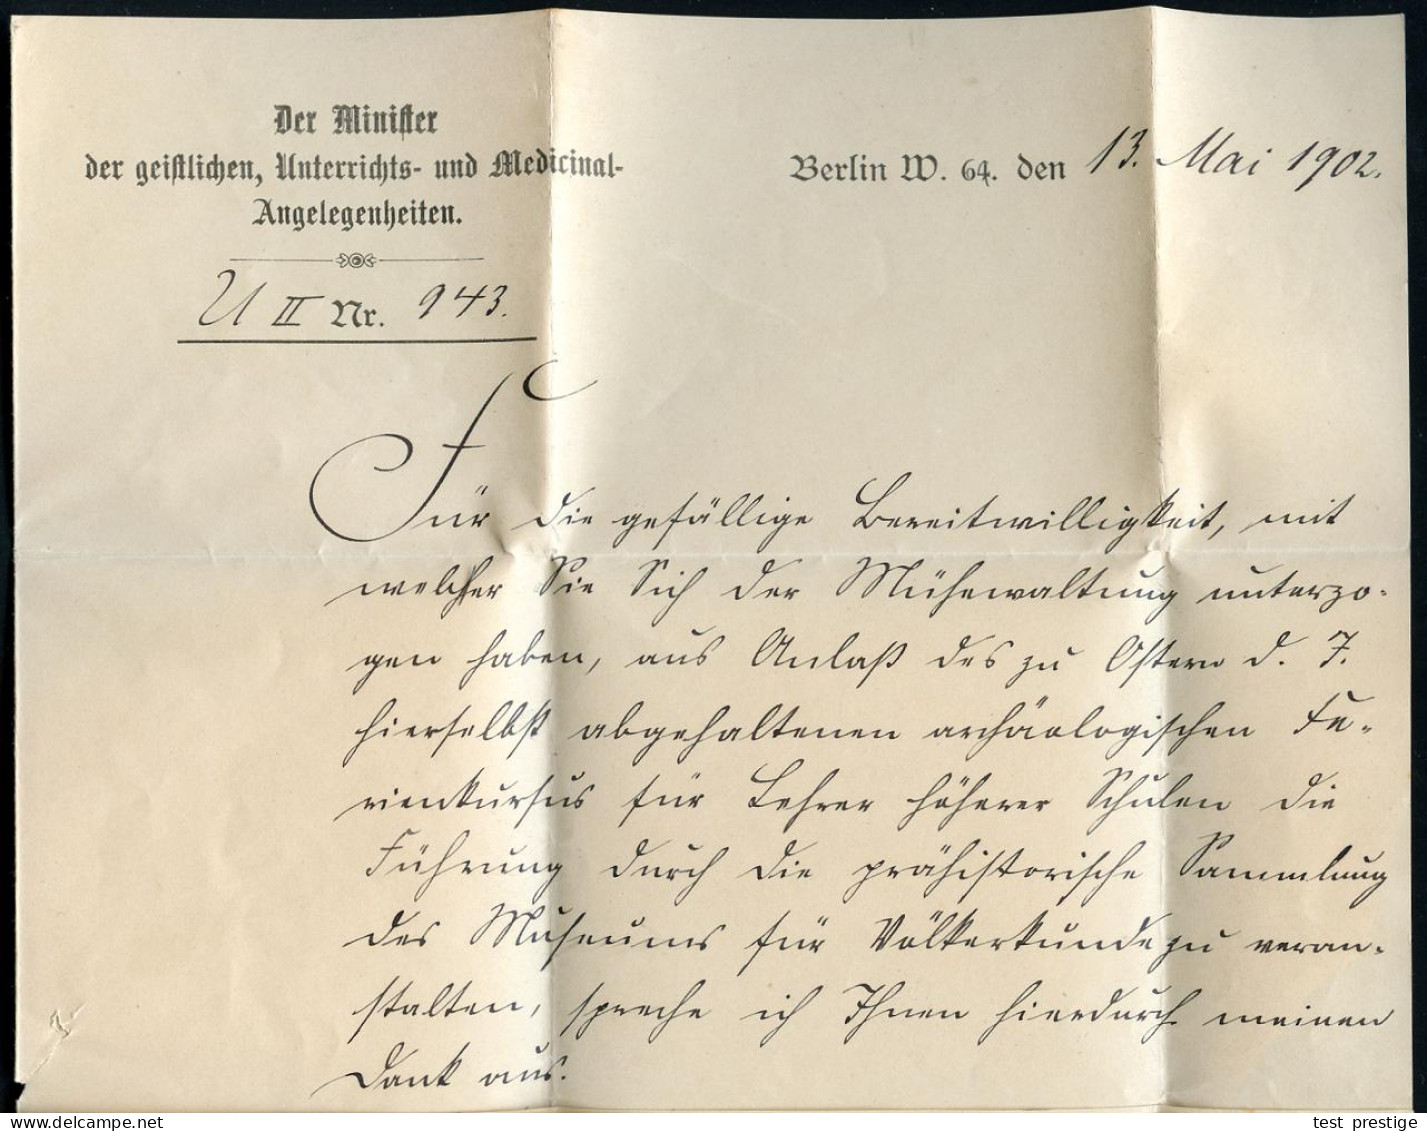 Der Minister
der geistlichen, Unterrichts- und Medicinal-
Angelegenheiten.
Berlin W. 64. den 13. Mai 1902.
U II Nr. 943.
Für die gefällige Bereitwilligkeit, mit
welcher Sie Sich der Mühewaltung unterzo-
gen haben, aus Anlaß des zu Ostern d. J.
hierselbst abgehaltenen archäologischen Fe-
rienkursus für Lehrer höherer Schulen die
Führung durch die prähistorische Sammlung
des Museums für Völkerkunde zu veran-
stalten, spreche ich Ihnen hierdurch meinen
Dank aus.
test prestige